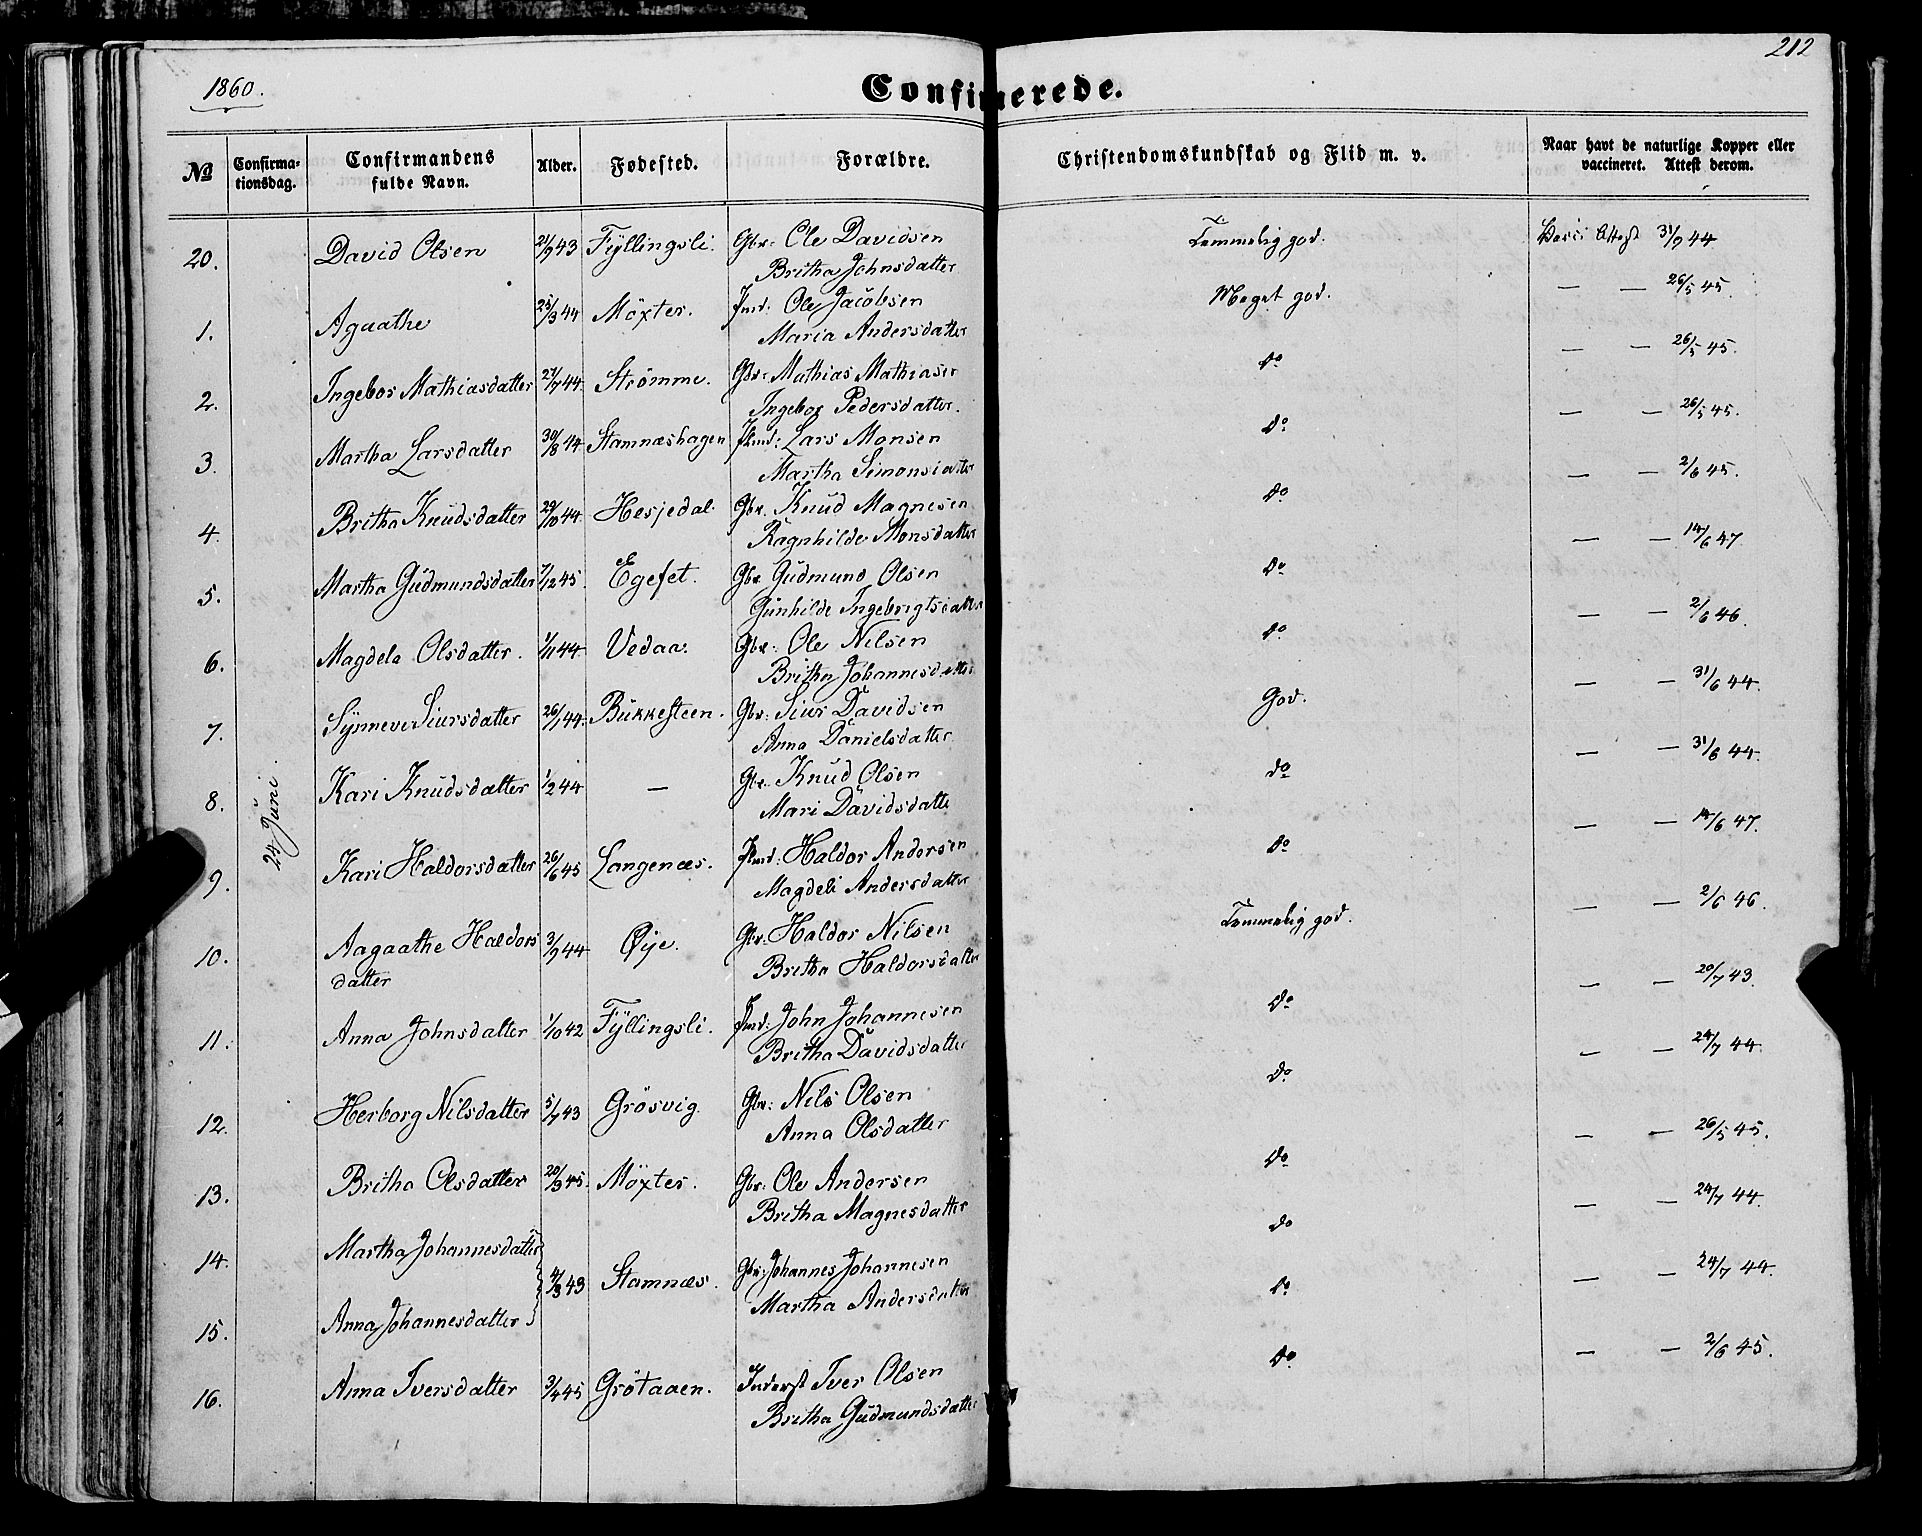 212
1860.
Confirmerede.
No Confirma-tionsdag. Confirmandens fulde Navn. Alder. Fødested. Forældre. Christendomskundskab og Flid m. v. Naar havt de naturlige Kopper eller vaccineret. Attest derom.
24 Juni.
20. David Olsen 21/9 43 Fÿllingsli. Gbr: Ole Davidsen Temmelig god. Vacci Attest 31/9 44
Britha Johnsdatter
1. Agaathe 25/3 44 Möxter. Ole Jacobsen Meget god. — — 26/5 45.
Maria Andersdatter
2. Ingebor Mathiasdatter 27/7 44. Strömme. Gbr: Mathias Mathiasen do — — 26/5 45.
Ingebor Pedersdatter.
3. Martha Larsdatter 30/8 44 Stamnæshagen Lars Monsen do — — 26/5 45.
Martha Simonsdatter
4. Britha Knudsdatter 29/10 44. Hesjedal. Gbr. Knud Magnesen do — — 2/6 45.
Ragnhilde Monsdatter
5. Martha Gudmundsdatter 7/12 45. Egeset. Gbr Gudmund Olsen do — — 14/6 47
Gunhilde Ingebrigtsdatter
6. Magdela Olsdatter. 1/11 44. Vedaa. Gbr: Ole Nilsen do — — 2/6 46.
Britha Johannesdatter
7. Synneve Siursdatter 26/ 44. Bukkesteen. Gbr: Siur Davidsen God. — — 31/6 44.
Anna Danielsdatter
8. Kari Knudsdatter 1/2 44 — Gbr. Knud Olsen do — — 31/6 44.
Mari Davidsdatter
9. Kari Haldorsdatter 26/6 45 Langenæs. Haldor Andersen do — — 14/6 47.
Magdeli Andersdatter
10. Aagaathe Haldors 3/9 44 Øÿe. Gbr. Haldor Nilsen Temmelig god. — — 2/6 46.
datter Britha Haldorsdatter
11. Anna Johnsdatter 1/10 42 Fÿllingsli. John Johannesen do — — 20/7 43.
Britha Davidsdatter
12. Herborg Nilsdatter 5/7 43 Grösvig. Gbr: Nils Olsen do — — 24/7 44.
Anna Olsdatter
13. Britha Olsdatter 20/3 45. Möxter. Gbr: Ole Andersen do — — 26/5 45.
Britha Magnesdatter
14. Martha Johannesdatter 4/3 43 Stamnæs. Gbr: Johannes Johannesen do — — 24/7 44.
Martha Andersdatter
15. Anna Johannesdatter do — — 24/7 44.
16. Anna Iversdatter 3/4 45 Grötaaen. Inderst Iver Olsen do — — 2/6 45.
Britha Gudmundsdatter